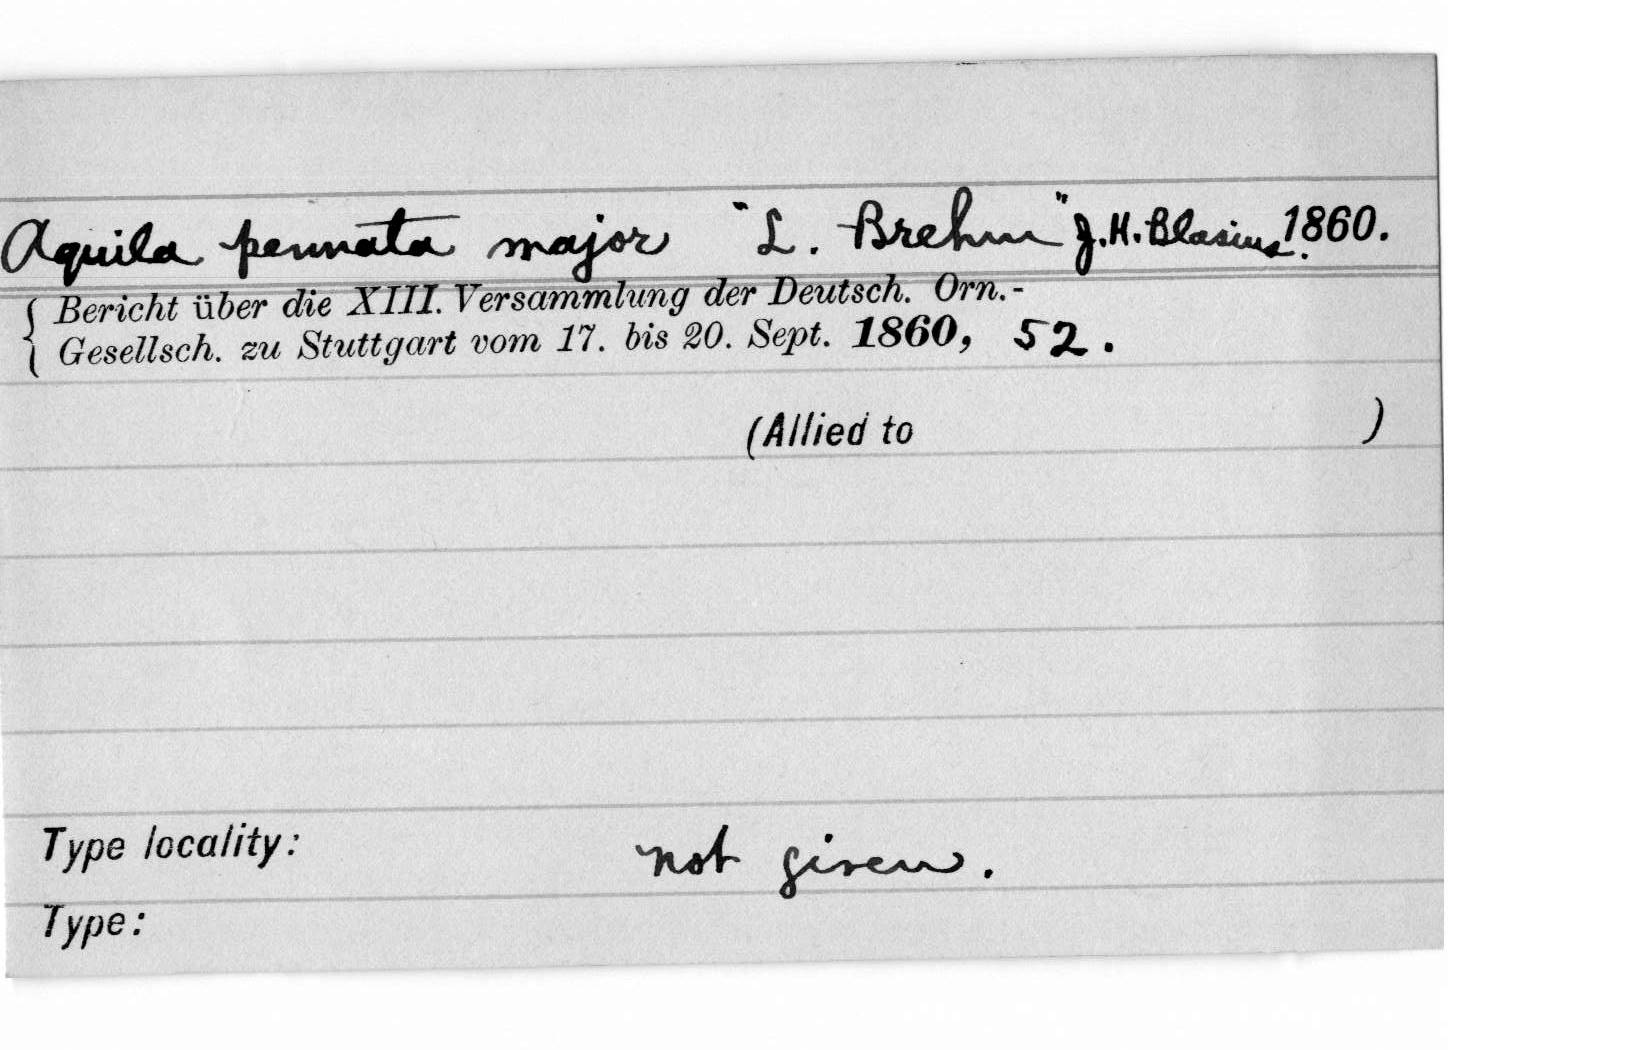 Aquila pennata major "L. Brehm" J. H. Blasius. 1860.
Bericht über die XIII. Versammlung der Deutsch. Orn.-
Gesellsch. zu Stuttgart vom 17. bis 20. Sept. 1860, 52.
(Allied to )
Type locality: not given.
Type: